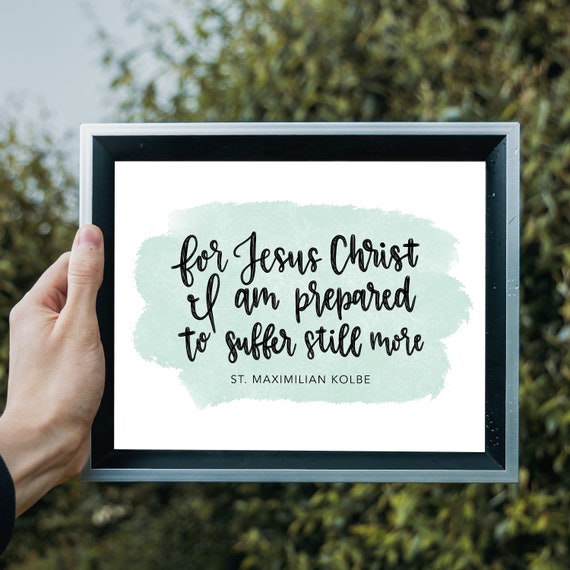 for Jesus Christ
I am prepared
to suffer still more
ST. MAXIMILIAN KOLBE